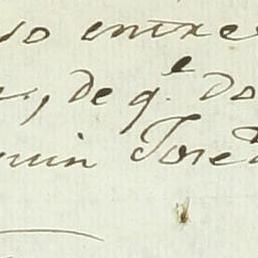 so entre
, de q.e do
uin Jose